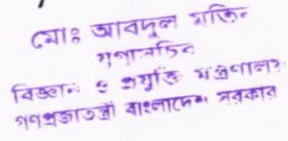 মোঃ আবদুল মতিন
যুগ্মসচিব
বিজ্ঞান ও প্রযুক্তি মন্ত্রণালয়
গণপ্রজাতন্ত্রী বাংলাদেশ সরকার